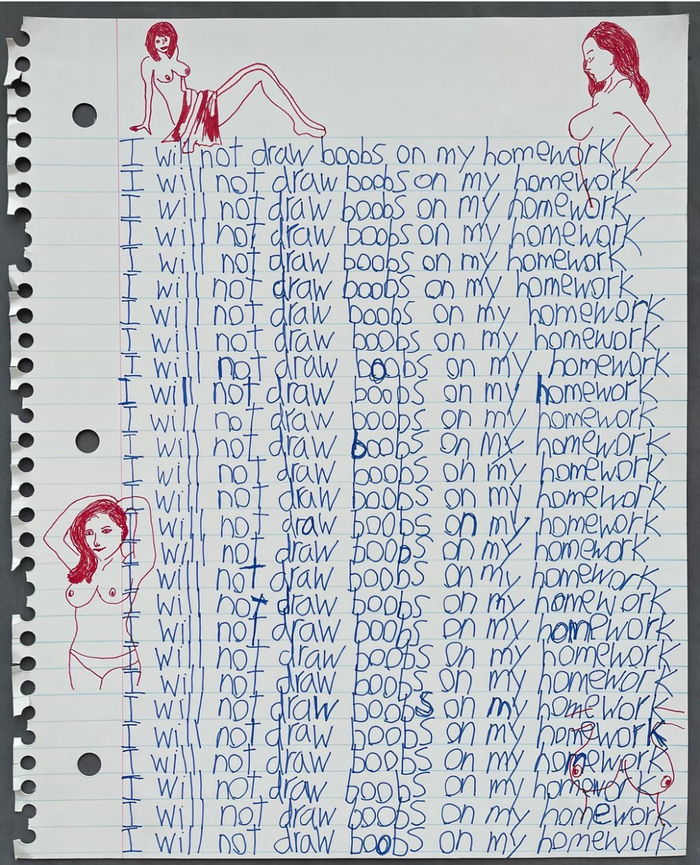 I will not draw boobs on my homework
I will not draw boobs on my homework
I will not draw boobs on my homework
I will not draw boobs on my homework
I will not draw boobs on my homework
I will not draw boobs on my homework
I will not draw boobs on my homework
I will not draw boobs on my homework
I will not draw boobs on my homework
I will not draw boobs on my homework
I will not draw boobs on my homework
I will not draw boobs on my homework
I will not draw boobs on my homework
I will not draw boobs on my homework
I will not draw boobs on my homework
I will not draw boobs on my homework
I will not draw boobs on my homework
I will not draw boobs on my homework
I will not draw boobs on my homework
I will not draw boobs on my homework
I will not draw boobs on my homework
I will not draw boobs on my homework
I will not draw boobs on my homework
I will not draw boobs on my homework
I will not draw boobs on my homework
I will not draw boobs on my homework
I will not draw boobs on my homework